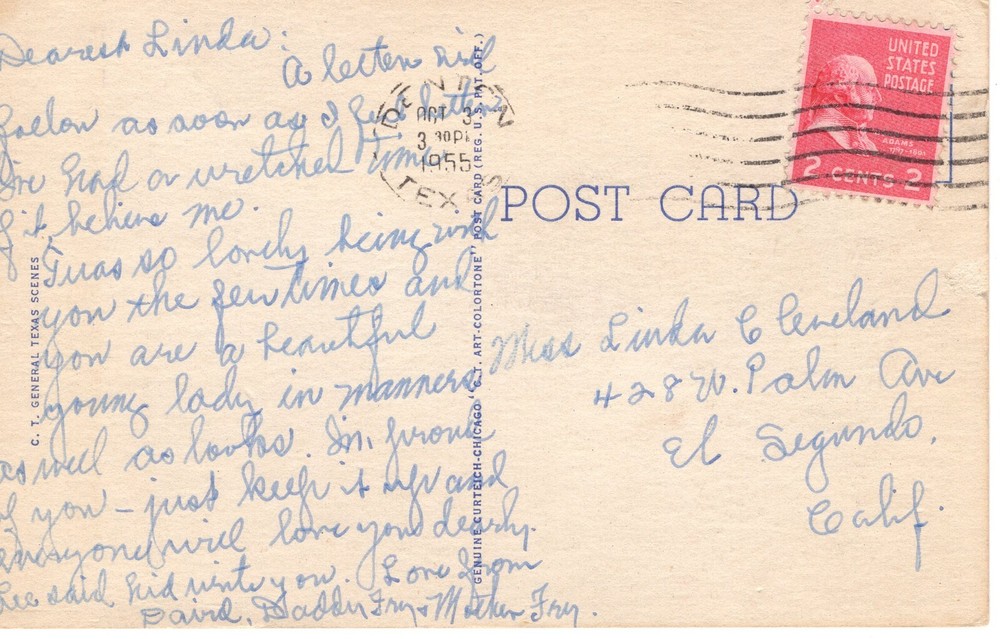 Dearest Linda:
A letter will
follow as soon as I feel better
I've had a wretched time
of it, believe me.
Twas so lovely being with
you the few times and
you are a beautiful
young lady in manners
as well as looks. I'm proud
of you – just keep it up and
everyone will love you dearly.
Lee said he'd write you. Love from
David, Daddy Fry & Mother Fry.
C. T. GENERAL TEXAS SCENES
DENTON
OCT 3
3 30 PM
1955
TEXAS
GENUINE CURTEICH-CHICAGO "C. T. ART-COLORTONE" POST CARD (REG. U. S. PAT. OFF.)
POST CARD
UNITED
STATES
POSTAGE
ADAMS
1797-1801
2 CENTS 2
Miss Linda Cleveland
428 W. Palm Ave
El Segundo,
Calif.